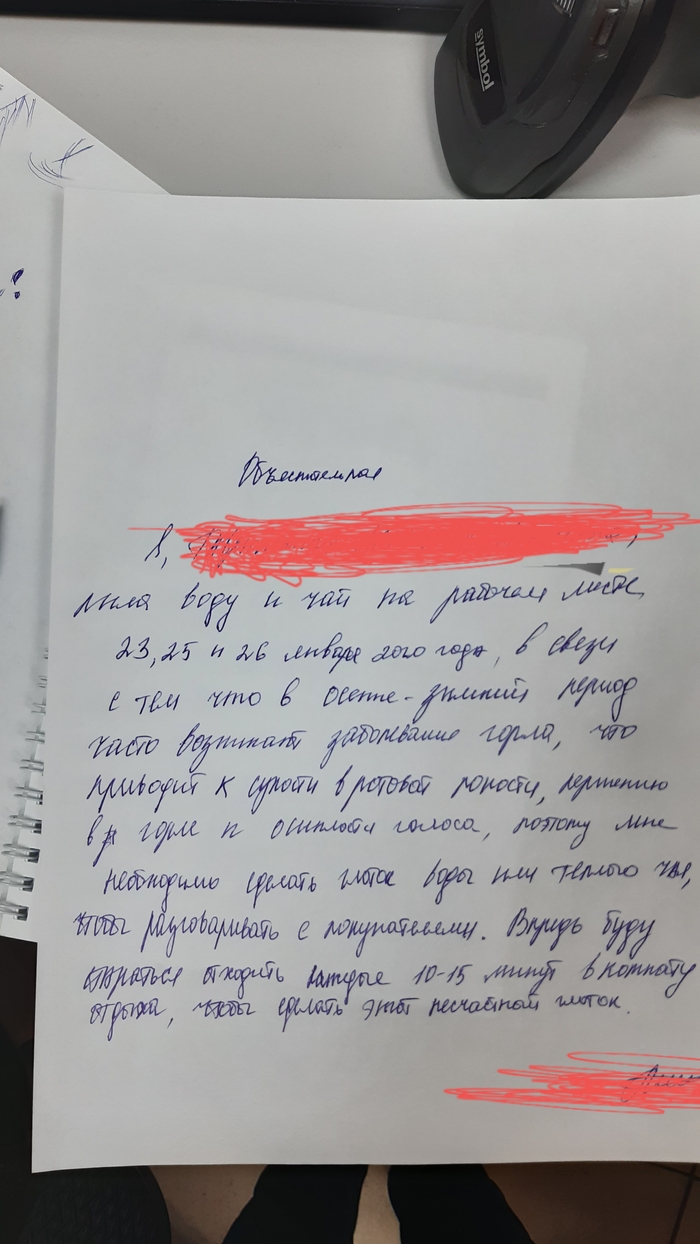 symbol
!
Объяснительная
Я,
пила воду и чай на рабочем месте
23, 25 и 26 января 2020 года, в связи
с тем что в осенне-зимний период
часто возникают заболевание горла, что
приводит к сухости в ротовой полости, першению
в горле и осиплости голоса, поэтому мне
необходимо сделать глоток воды или теплого чая,
чтобы разговаривать с покупателями. Впредь буду
стараться отходить каждые 10-15 минут в комнату
отдыха, чтобы сделать этот несчастный глоток.